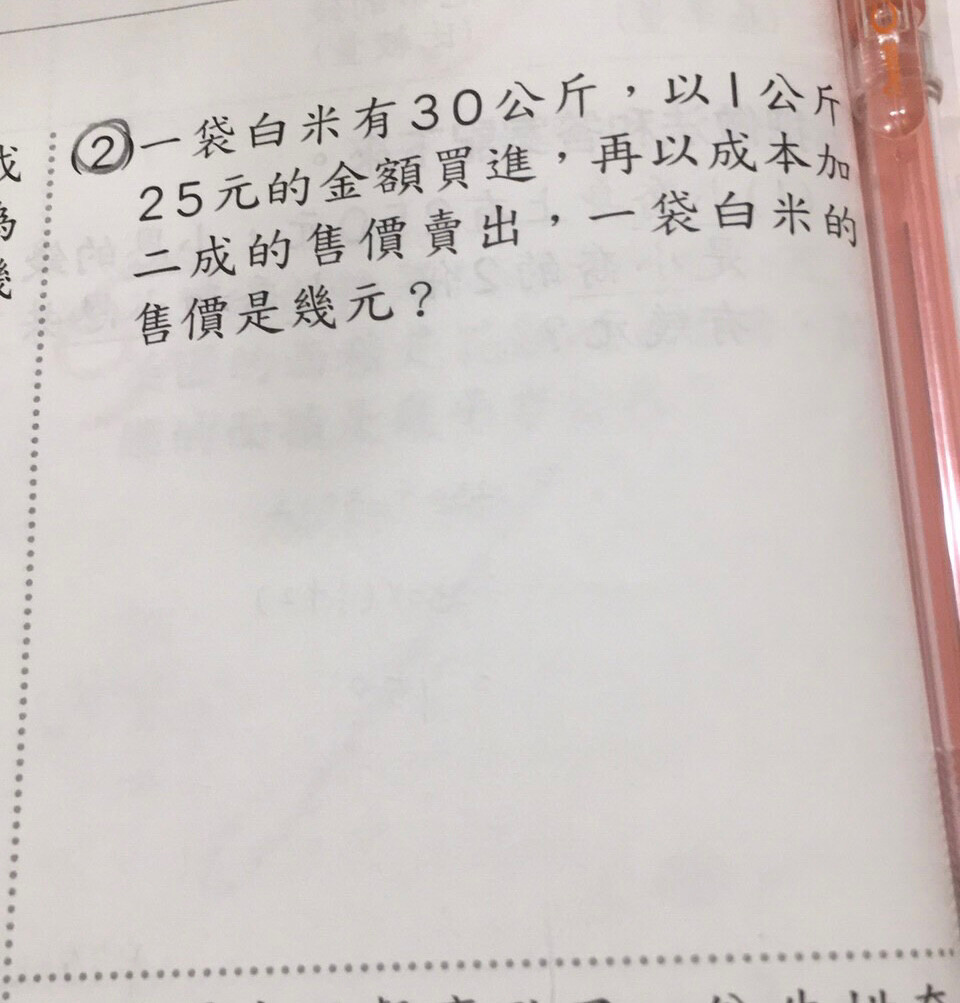 ②一袋白米有30公斤，以1公斤
25元的金額買進，再以成本加
二成的售價賣出，一袋白米的
售價是幾元？